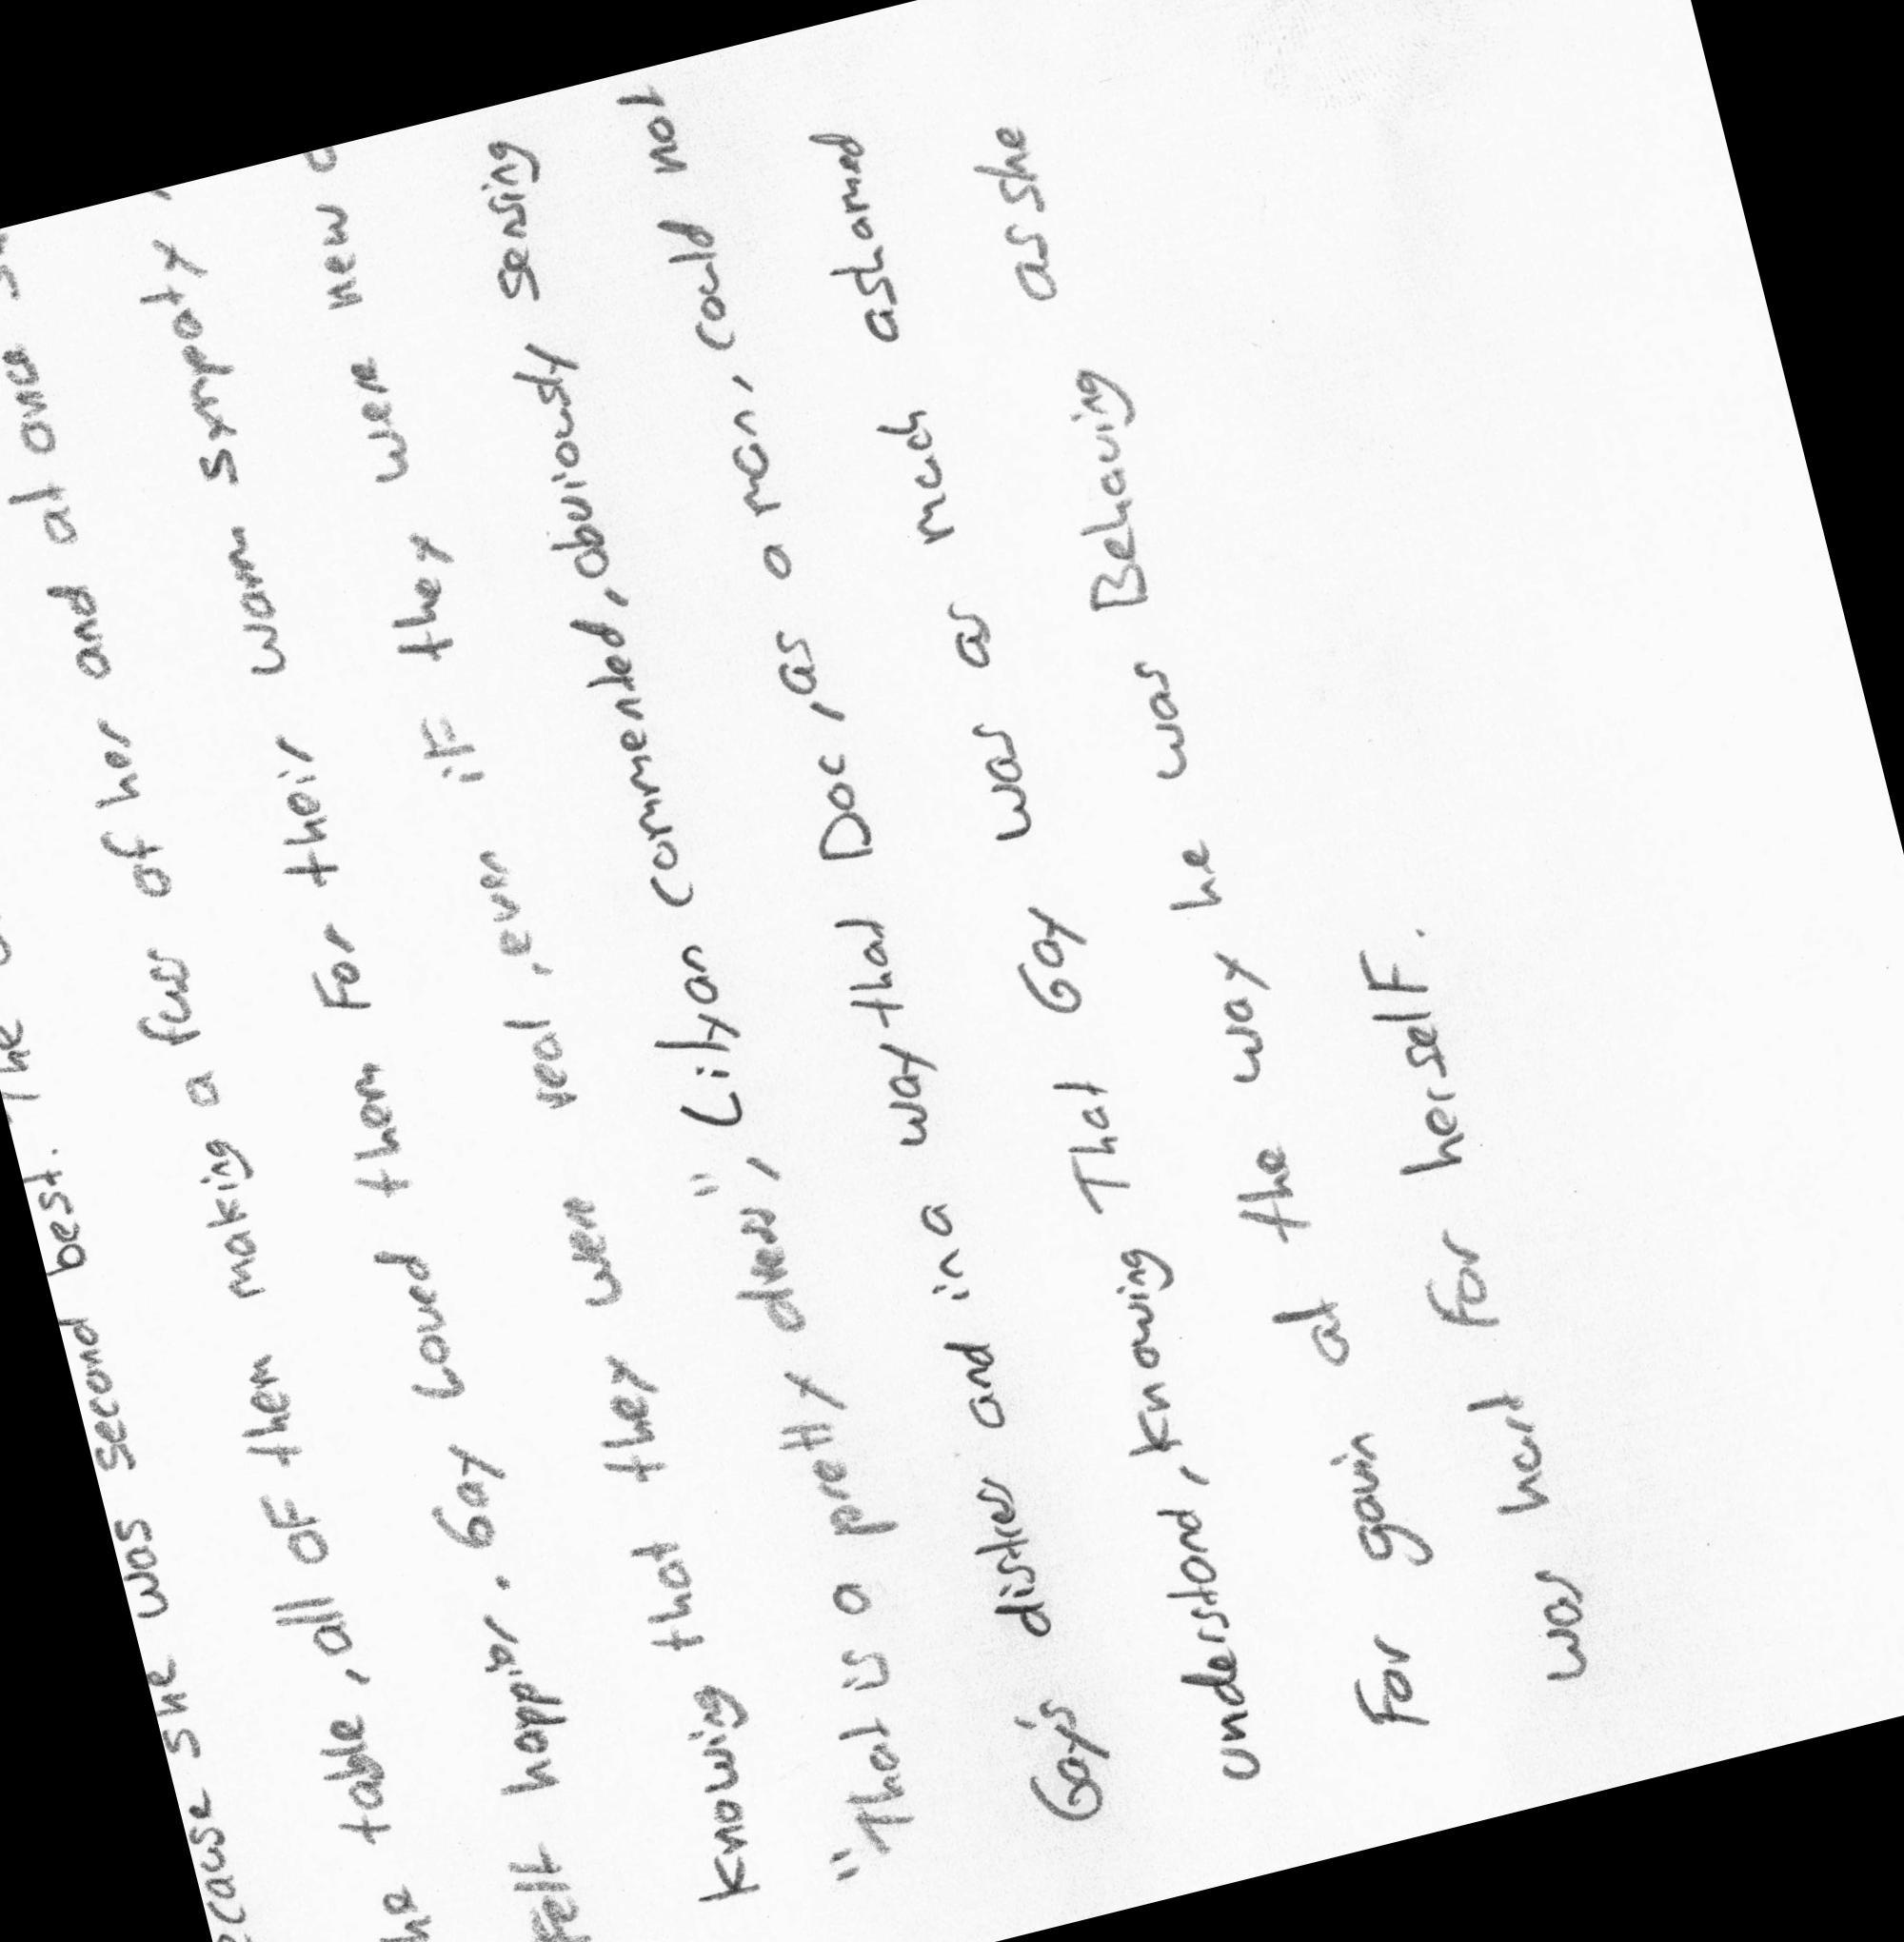 she was second best. The
table, all OF them making a fuss of her and at once
Felt happier. Gay Loved them For their warm sympaty
Knowing that they were real, even iF they were new
"That is a pretty dress", "Lilyan commented, obviously sensing
Gay's distress and in a way that Doc, as a man, could not
understand, Knowing That Gay was as much ashamed
For gavin at the way he was Behaving as she
was hart For herselF.